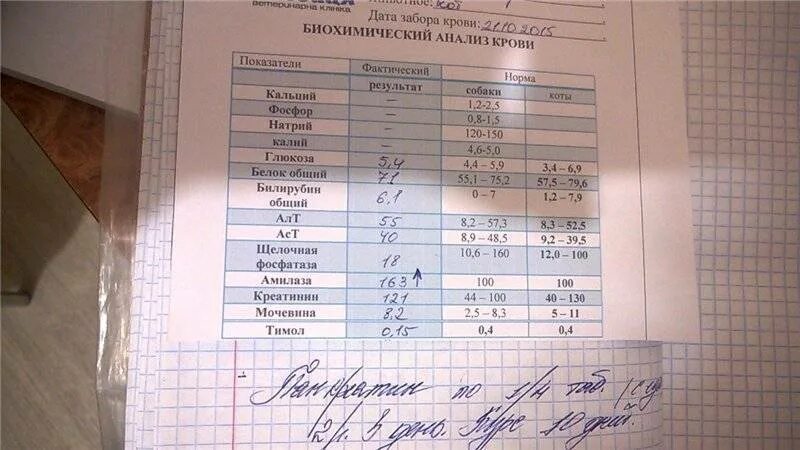 ветеринарна клініка
Животное: кот
Дата забора крови: 21.10.2015
БИОХИМИЧЕСКИЙ АНАЛИЗ КРОВИ
Показатели Фактический результат Норма
собаки коты
Кальций — 1,2-2,5
Фосфор — 0,8-1,5
Натрий — 120-150
калий — 4,6-5,0
Глюкоза 5,4 4,4 – 5,9 3,4 – 6,9
Белок общий 71 55,1 – 75,2 57,5 – 79,6
Билирубин общий 6,1 0 – 7 1,2 – 7,9
АлТ 55 8,2 – 57,3 8,3 – 52,5
АсТ 40 8,9 – 48,5 9,2 – 39,5
Щелочная фосфатаза 18 10,6 – 160 12,0 – 100
Амилаза 163 ↑ 100 100
Креатинин 121 44 – 100 40 – 130
Мочевина 8,2 2,5 – 8,3 5 – 11
Тимол 0,15 0,4 0,4
Панкреатин по 1/4 таб.
2 р. в день. Курс 10 дней.